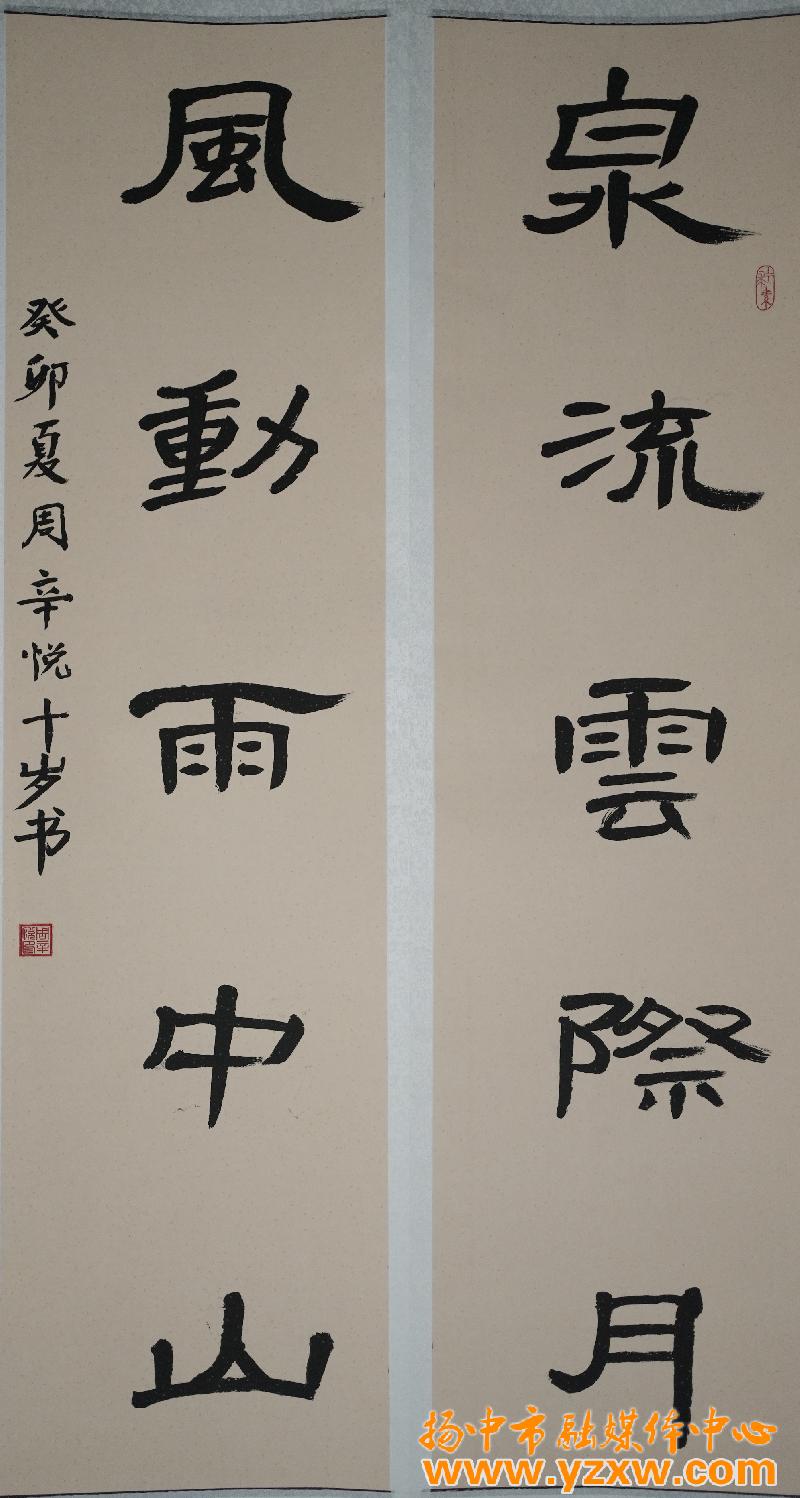 泉流雲際月
風動雨中山
癸卯夏周辛悦十岁书
扬中市融媒体中心
www.yzxw.com